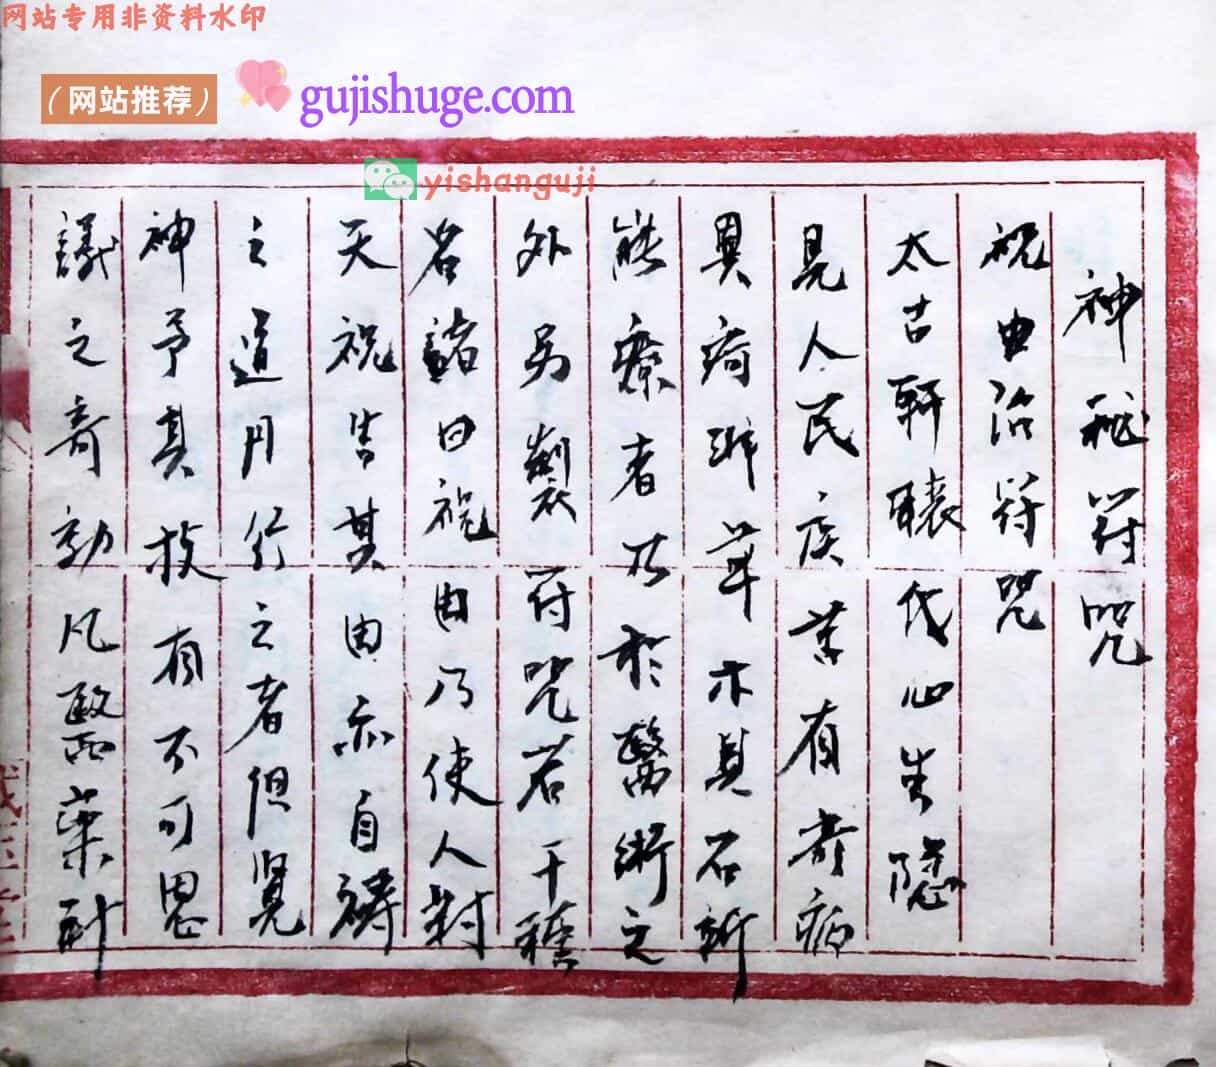 网站专用非资料水印
（网站推荐）
gujishuge.com
yishanguji
神秘符咒
祝由治符咒
太古軒轅氏心生隱
見人民疾苦有奇病
異疴非草木具石所
能療者乃於醫術之
外另製符咒若干種
名諸曰祝由乃使人對
天祝告其由亦自禱
之道月行之者但覺
神乎其技有不可思
議之奇効凡醫藥所